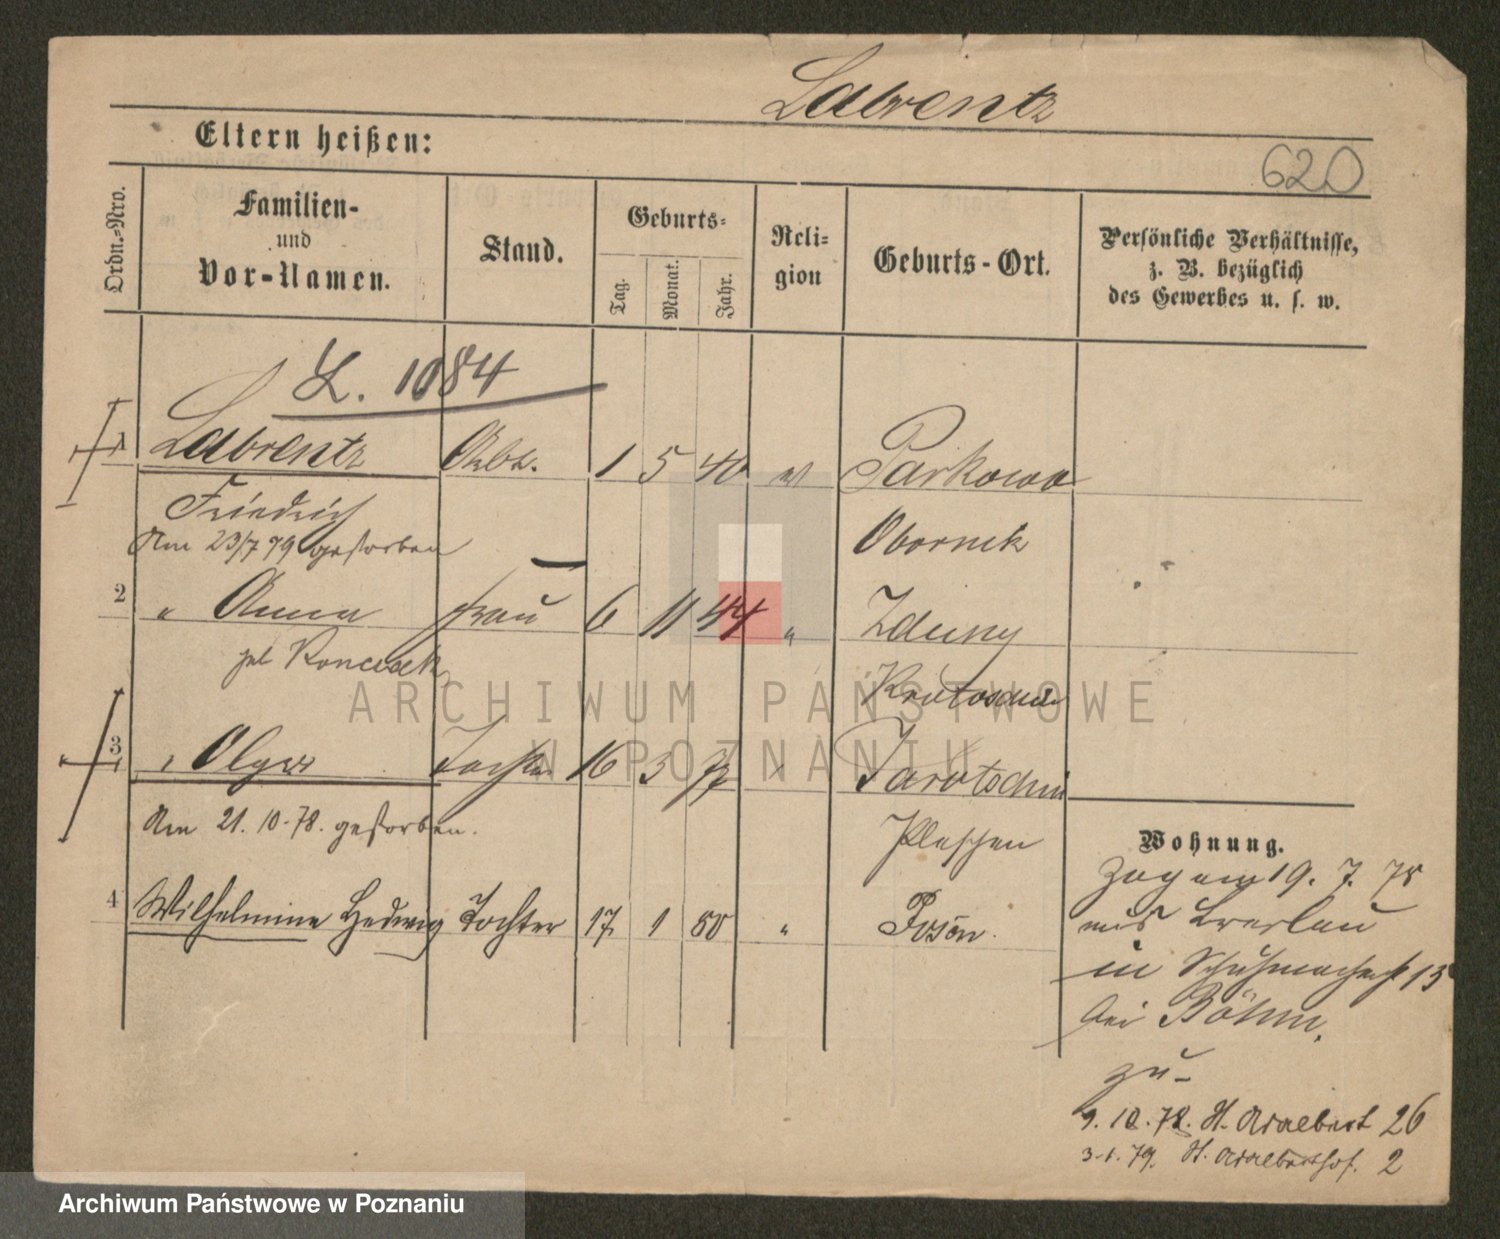 Labrentz
Eltern heißen:
620
Ordn.-Nro.
Familien-
und
Vor-Namen.
Stand.
Geburts-
Tag.
Monat.
Jahr.
Reli-
gion
Geburts-Ort.
Persönliche Verhältnisse,
z. B. bezüglich
des Gewerbes u. s. w.
L. 1084
1 Labrentz Arb. 1 5 40 Parkowo
Friedrich Obornik
Am 23/7 79 gestorben
2 " Anna Frau 6 11 44 " Zduny
Krotoschin
3 Olga Tochter 16 3 77 Jarotschin
Am 21. 10. 78. gestorben. Pleschen
4 Wilhelmine Hedwig Tochter 17. 1 80 " Posen.
Wohnung.
Zog am 19. 7. 78
aus Breslau
in Schuhmacherst 13
bei Böhm.
zu-
9. 10. 78. St. Adalbert 26
3. 1. 79. St. Adalbertshof. 2
ARCHIWUM PAŃSTWOWE
W POZNANIU
Archiwum Państwowe w Poznaniu